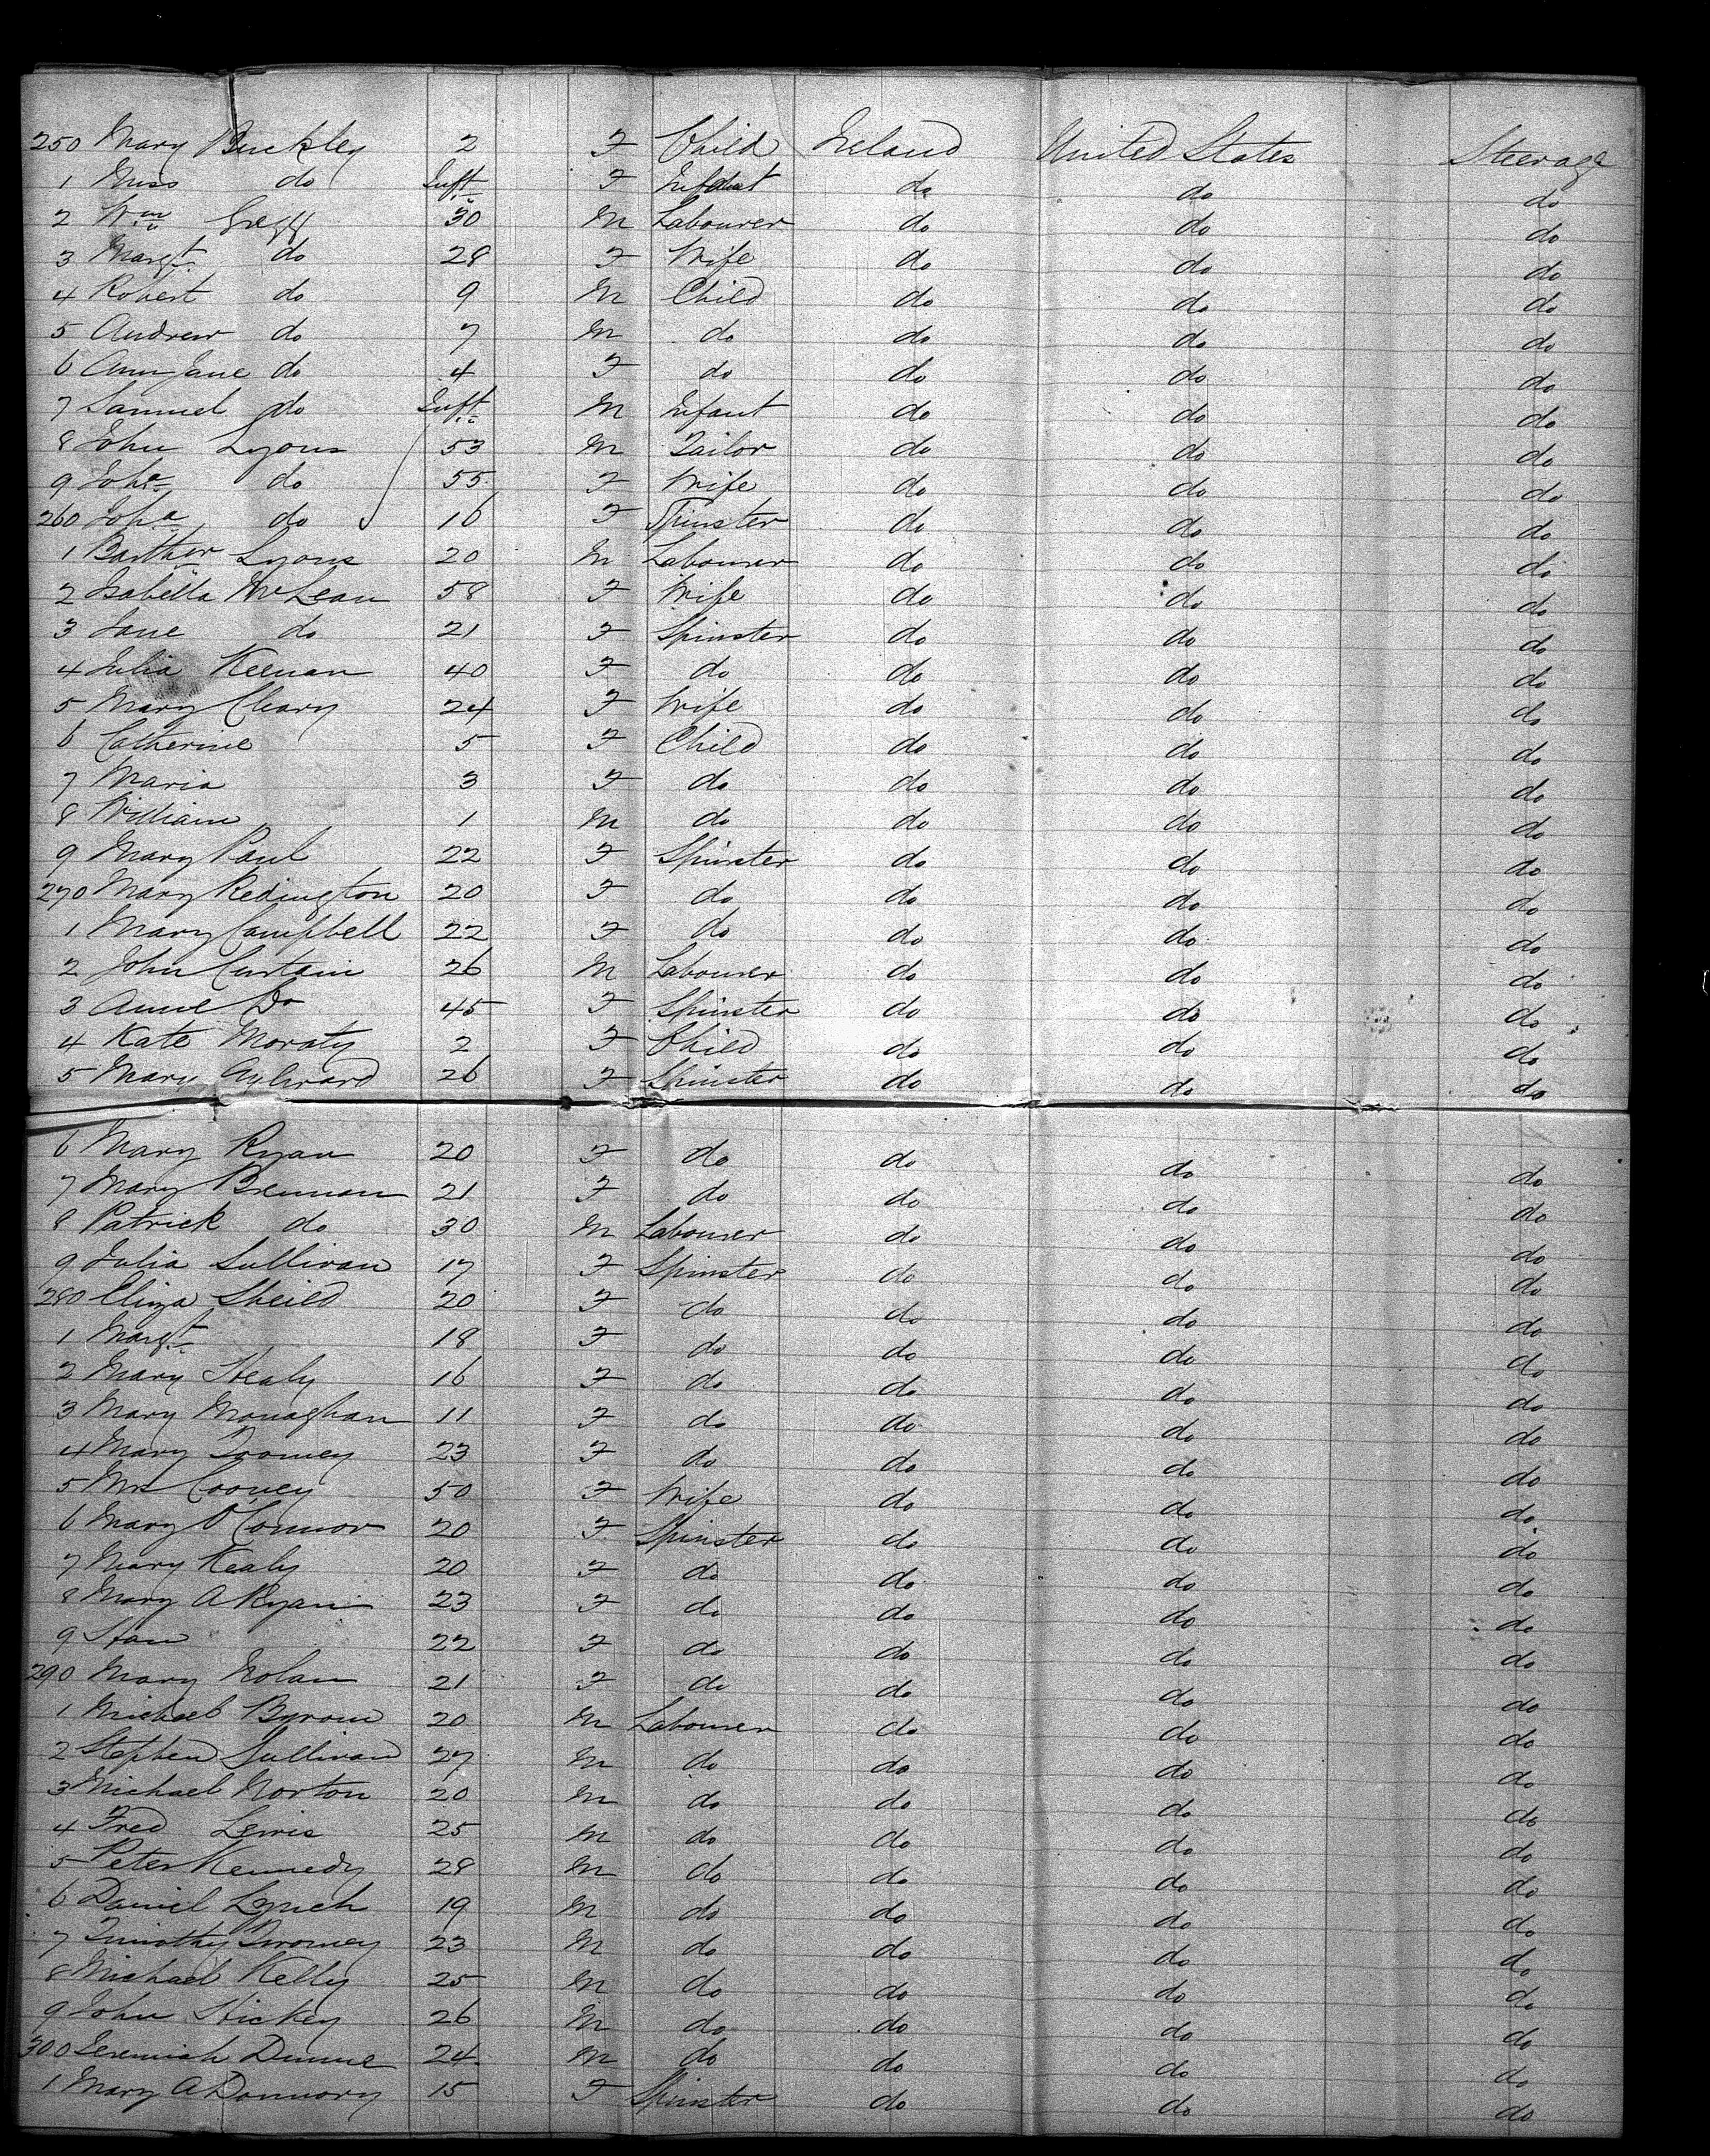 250 Mary Buckley 2 F Child Ireland United States Steerage
1 Miss do Inft F Infant do do do
2 Wm Gregg 30 M Labourer do do do
3 Margt do 28 F Wife do do do
4 Robert do 9 M Child do do do
5 Andrew do 7 M do do do do
6 Ann Jane do 4 F do do do do
7 Samuel do Inft M Infant do do do
8 John Lyons 53 M Tailor do do do
9 Joha do 55 F Wife do do do
260 Joha do 16 F Spinster do do do
1 Barthw Lyons 20 M Labourer do do do
2 Isabella McLean 58 F Wife do do do
3 Jane do 21 F Spinster do do do
4 Julia Keenan 40 F do do do do
5 Mary Cleary 24 F Wife do do do
6 Catherine 5 F Child do do do
7 Maria 3 F do do do do
8 William 1 M do do do do
9 Mary Paul 22 F Spinster do do do
270 Mary Redington 20 F do do do do
1 Mary Campbell 22 F do do do do
2 John Curtain 26 M Labourer do do do
3 Anne Do 45 F Spinster do do do
4 Kate Moraty 2 F Child do do do
5 Mary Aylward 26 F Spinster do do do
6 Mary Ryan 20 F do do do do
7 Mary Brennan 21 F do do do do
8 Patrick do 30 M Labourer do do do
9 Julia Sullivan 17 F Spinster do do do
280 Eliza Sheild 20 F do do do do
1 Margt 18 F do do do do
2 Mary Healy 16 F do do do do
3 Mary Monaghan 11 F do do do do
4 Mary Toomey 23 F do do do do
5 Mrs Cooney 50 F Wife do do do
6 Mary O'Connor 20 F Spinster do do do
7 Mary Kealy 20 F do do do do
8 Mary A Ryan 23 F do do do do
9 Han 22 F do do do do
290 Mary Nolan 21 F do do do do
1 Michael Byrom 20 M Labourer do do do
2 Stephen Sullivan 27 M do do do do
3 Michael Norton 20 M do do do do
4 Fred Lewis 25 M do do do do
5 Peter Kennedy 28 M do do do do
6 Daniel Lynch 19 M do do do do
7 Timothy Twomey 23 M do do do do
8 Michael Kelly 25 M do do do do
9 John Hickey 26 M do do do do
300 Jeremiah Dunne 24 M do do do do
1 Mary A 15 F Spinster do do do